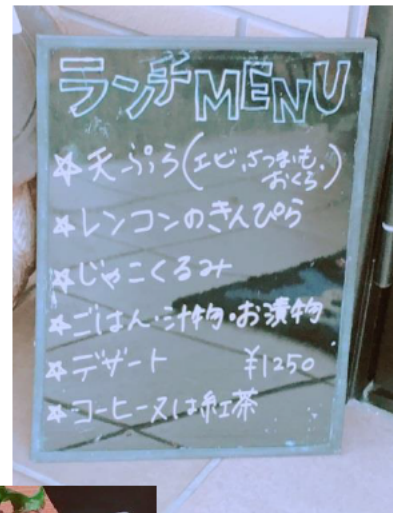 ランチMENU
☆天ぷら(エビ、さつまいも、
おくら)
☆レンコンのきんぴら
☆じゃこくるみ
☆ごはん・汁物・お漬物
☆デザート ¥1250
☆コーヒー又は紅茶